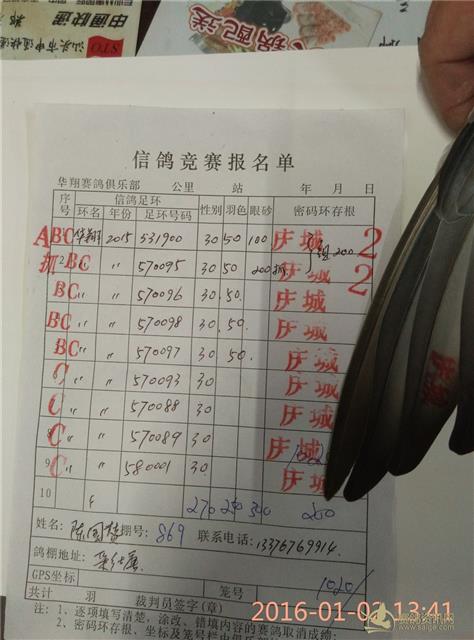 申通快递
STO
汕头市申通快递
配送
信鸽竞赛报名单
华翔赛鸽俱乐部 公里 站 年 月 日
序号 信鸽足环 性别 羽色 眼砂 密码环存根
环名 年份 足环号码
ABC 华翔 2015 531900 30 50 100 庆城 200 2
抓 2 BC 〃 〃 570095 30 50 200 抓 庆城 2
BC 〃 〃 570096 30. 50. 庆城
BC 〃 〃 570098 30. 50. 庆城
BC 〃 〃 570097 30 50. 庆城
C 〃 〃 570093 30 庆城
C 〃 〃 570088 30 庆城
8 C 〃 〃 570089 30. 庆城
9 C 〃 〃 580001 30. 庆城
10 270 250 300 200
姓名: 棚号: 869 联系电话: 13376769914.
鸽棚地址:
GPS坐标 笼号 1020/
共计 羽 裁判员签字(章)
注: 1、逐项填写清楚, 涂改、错填内容的赛鸽取消成绩;
2、密码环存根、坐标及笼号栏由俱乐部
庆城
2016-01-01 13:41
www.saige.com